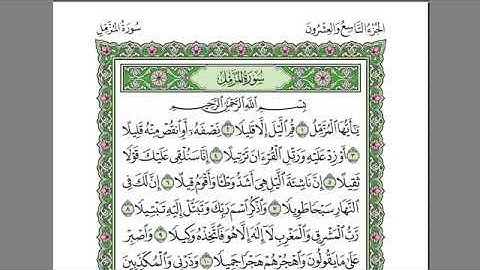 سُورَةُ المُزَّمِّل
الجُزْءُ التَّاسِعُ وَالعِشْرُونَ
سُورَةُ المُزَّمِّلِ
بِسْمِ اللَّهِ الرَّحْمَٰنِ الرَّحِيمِ
يَٰٓأَيُّهَا الْمُزَّمِّلُ ١ قُمِ الَّيْلَ إِلَّا قَلِيلًا ٢ نِّصْفَهُۥٓ أَوِ انقُصْ مِنْهُ قَلِيلًا
٣ أَوْ زِدْ عَلَيْهِ وَرَتِّلِ الْقُرْءَانَ تَرْتِيلًا ٤ إِنَّا سَنُلْقِى عَلَيْكَ قَوْلًا
ثَقِيلًا ٥ إِنَّ نَاشِئَةَ الَّيْلِ هِىَ أَشَدُّ وَطْـًٔا وَأَقْوَمُ قِيلًا ٦ إِنَّ لَكَ فِى
النَّهَارِ سَبْحًا طَوِيلًا ٧ وَاذْكُرِ اسْمَ رَبِّكَ وَتَبَتَّلْ إِلَيْهِ تَبْتِيلًا ٨
رَّبُّ الْمَشْرِقِ وَالْمَغْرِبِ لَآ إِلَٰهَ إِلَّا هُوَ فَاتَّخِذْهُ وَكِيلًا ٩ وَاصْبِرْ
عَلَىٰ مَا يَقُولُونَ وَاهْجُرْهُمْ هَجْرًا جَمِيلًا ١٠ وَذَرْنِى وَالْمُكَذِّبِينَ